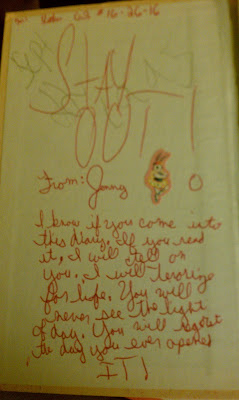 STAY
OUT!!
From: Jenny
I know if you come into
this diary. If you read
it, I will tell on
you. I will terorize
for life. You will
never see the light
of day. You will regret
the day you ever opened
IT!